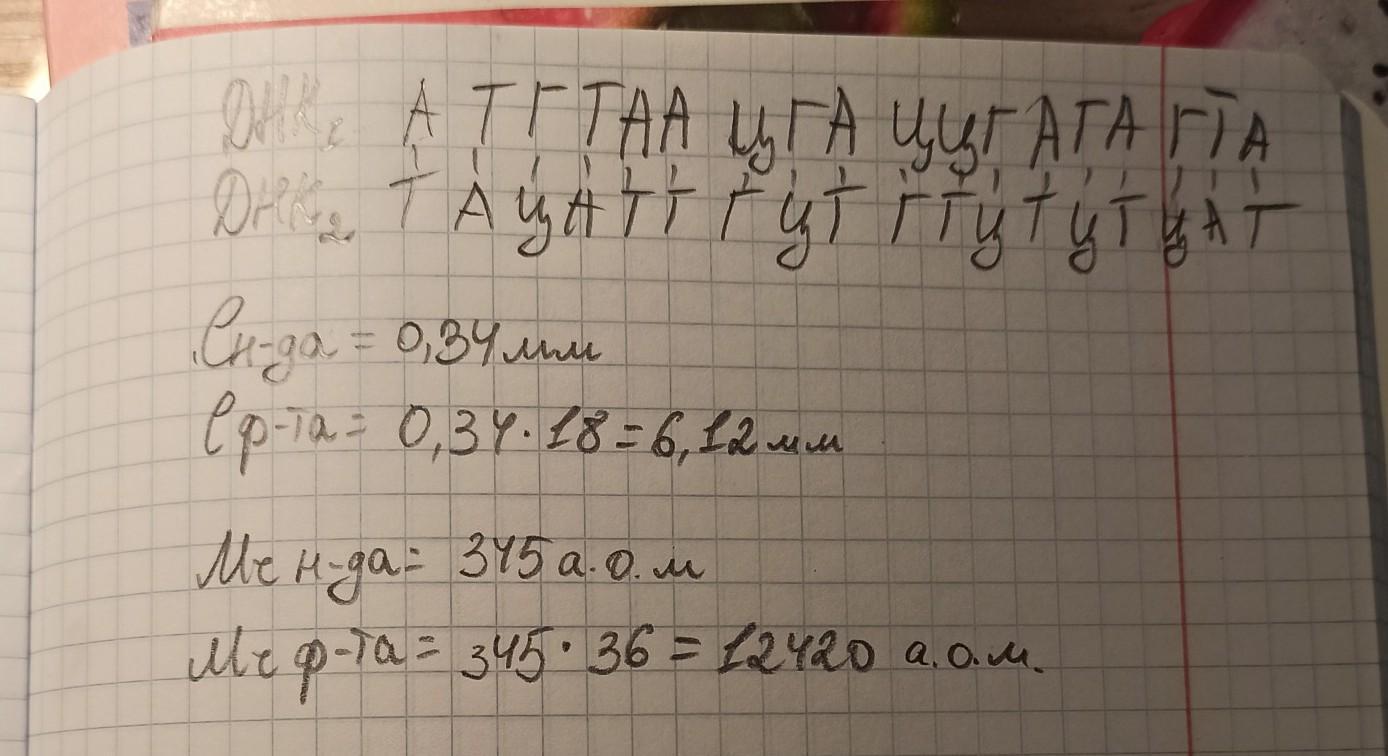 ДНК₁ А Т Г Т А А Ц Г А Ц Ц Г А Г А Г Т А
ДНК₂ Т А Ц А Т Т Г Ц Т Г Т Ц Т Ц Т Ц А Т
lн-да = 0,34 мм
lф-та = 0,34 · 18 = 6,12 мм
Mч н-да = 345 а.о.м
Mч ф-та = 345 · 36 = 12420 а.о.м.